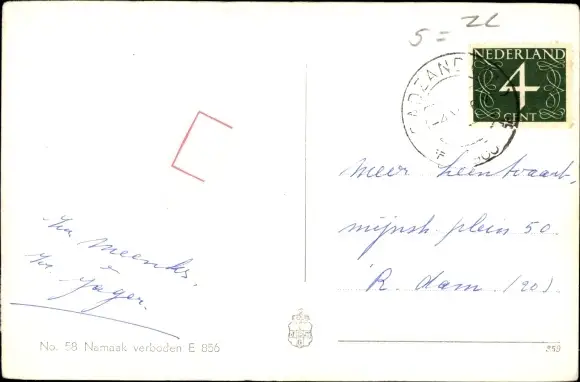 5 = ZL
NEDERLAND
4
CENT
CADZAND
meer heenvaart
mijnsh. plein 50.
R. dam. (20).
Meenks,
Jager.
No. 58 Namaak verboden E 856
359